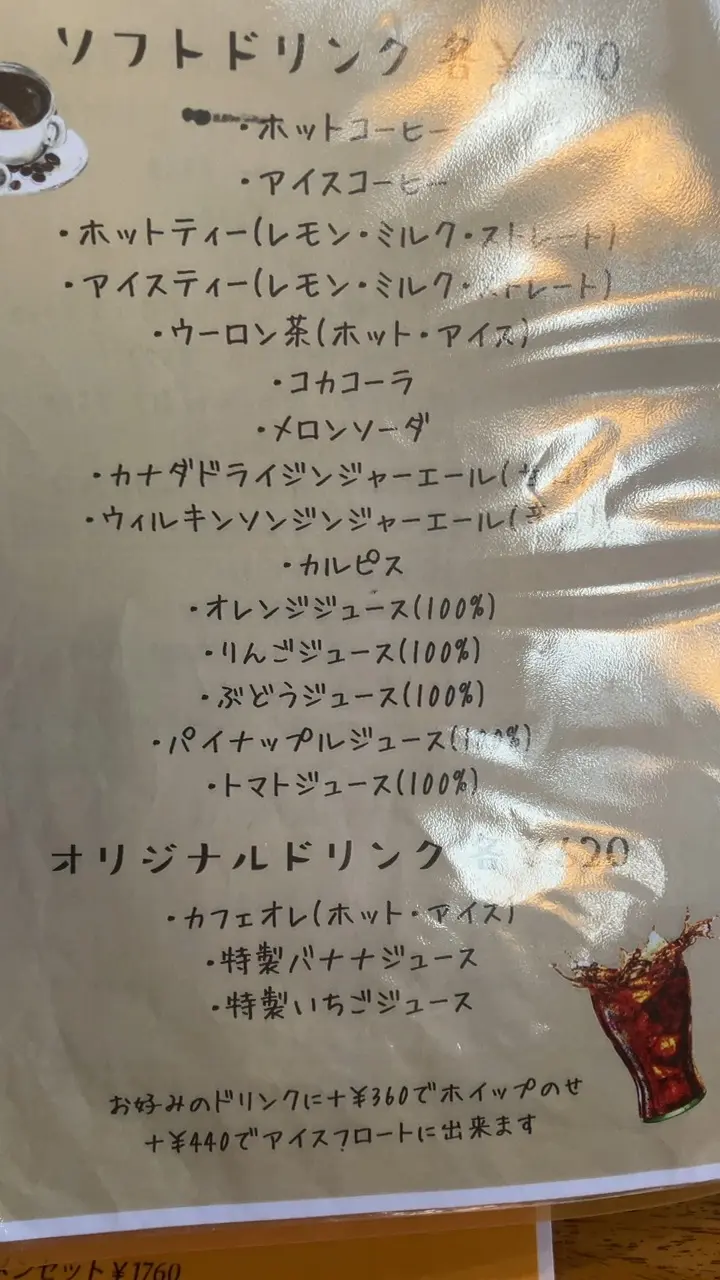 ソフトドリンク 各
・ホットコーヒー
・アイスコーヒー
・ホットティー(レモン・ミルク・ストレート)
・アイスティー(レモン・ミルク・ストレート)
・ウーロン茶(ホット・アイス)
・コカコーラ
・メロンソーダ
・カナダドライジンジャーエール(
・ウィルキンソンジンジャーエール(
・カルピス
・オレンジジュース(100%)
・りんごジュース(100%)
・ぶどうジュース(100%)
・パイナップルジュース(100%)
・トマトジュース(100%)
オリジナルドリンク 各
・カフェオレ(ホット・アイス)
・特製バナナジュース
・特製いちごジュース
お好みのドリンクに+¥360でホイップのせ
+¥440でアイスフロートに出来ます
セット¥1760